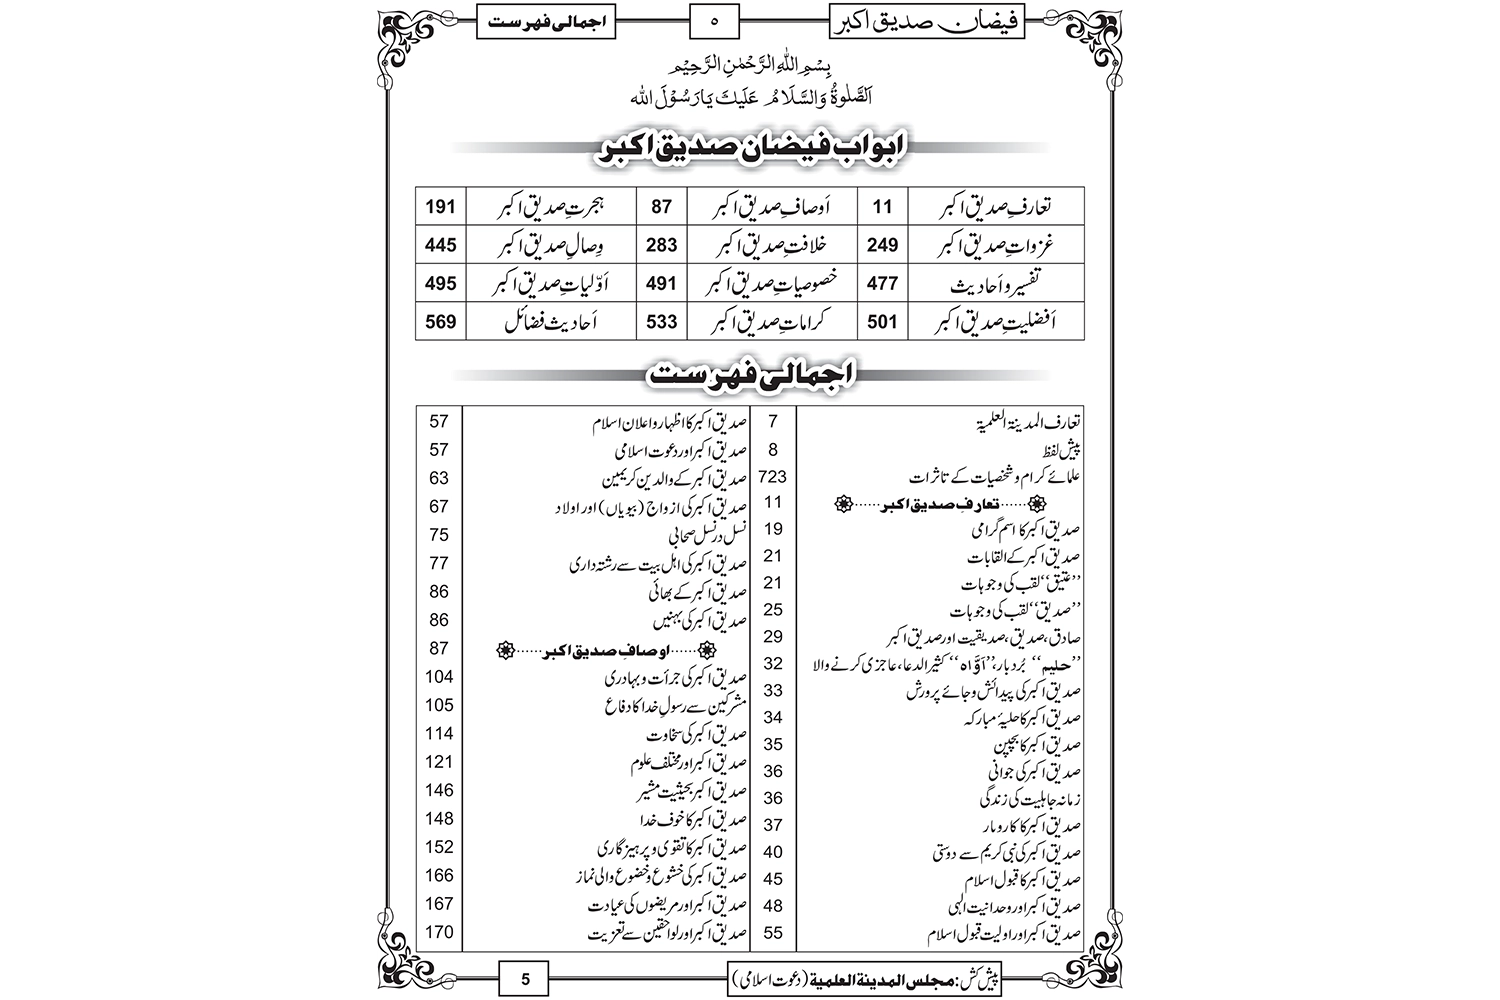 فیضانِ صدیق اکبر ۵ اجمالی فہرست
بِسْمِ اللّٰهِ الرَّحْمٰنِ الرَّحِيْمِ
اَلصَّلٰوةُ وَالسَّلَامُ عَلَيْكَ يَا رَسُوْلَ الله
ابواب فیضان صدیق اکبر
تعارفِ صدیق اکبر 11 اَوصافِ صدیق اکبر 87 ہجرتِ صدیق اکبر 191
غزواتِ صدیق اکبر 249 خلافتِ صدیق اکبر 283 وِصالِ صدیق اکبر 445
تفسیر و اَحادیث 477 خصوصیاتِ صدیق اکبر 491 اَوّلیاتِ صدیق اکبر 495
اَفضلیتِ صدیق اکبر 501 کراماتِ صدیق اکبر 533 اَحادیث فضائل 569
اجمالی فہرست
تعارف المدینۃ العلمیۃ 7
پیش لفظ 8
علمائے کرام و شخصیات کے تاثرات 723
......تعارفِ صدیق اکبر...... 11
صدیق اکبر کا اسم گرامی 19
صدیق اکبر کے القابات 21
’’عتیق‘‘ لقب کی وجوہات 21
’’صدیق‘‘ لقب کی وجوہات 25
صادق، صدیق، صدیقیت اور صدیق اکبر 29
’’حلیم‘‘ بُردبار، ’’اَوَّاہ‘‘ کثیر الدعا، عاجزی کرنے والا 32
صدیق اکبر کی پیدائش و جائے پرورش 33
صدیق اکبر کا حلیۂ مبارکہ 34
صدیق اکبر کا بچپن 35
صدیق اکبر کی جوانی 36
زمانہ جاہلیت کی زندگی 36
صدیق اکبر کا کاروبار 37
صدیق اکبر کی نبی کریم سے دوستی 40
صدیق اکبر کا قبول اسلام 45
صدیق اکبر اور وحدانیت الٰہی 48
صدیق اکبر اور اولیت قبول اسلام 55
صدیق اکبر کا اظہار و اعلان اسلام 57
صدیق اکبر اور دعوت اسلامی 57
صدیق اکبر کے والدین کریمین 63
صدیق اکبر کی ازواج (بیویاں) اور اولاد 67
نسل در نسل صحابی 75
صدیق اکبر کی اہل بیت سے رشتہ داری 77
صدیق اکبر کے بھائی 86
صدیق اکبر کی بہنیں 86
......اوصافِ صدیق اکبر...... 87
صدیق اکبر کی جرأت و بہادری 104
مشرکین سے رسولِ خدا کا دفاع 105
صدیق اکبر کی سخاوت 114
صدیق اکبر اور مختلف علوم 121
صدیق اکبر بحیثیت مشیر 146
صدیق اکبر کا خوف خدا 148
صدیق اکبر کا تقوی و پرہیزگاری 152
صدیق اکبر کی خشوع و خضوع والی نماز 166
صدیق اکبر اور مریضوں کی عیادت 167
صدیق اکبر اور لواحقین سے تعزیت 170
پیش کش: مجلس المدینۃ العلمیۃ (دعوت اسلامی) 5